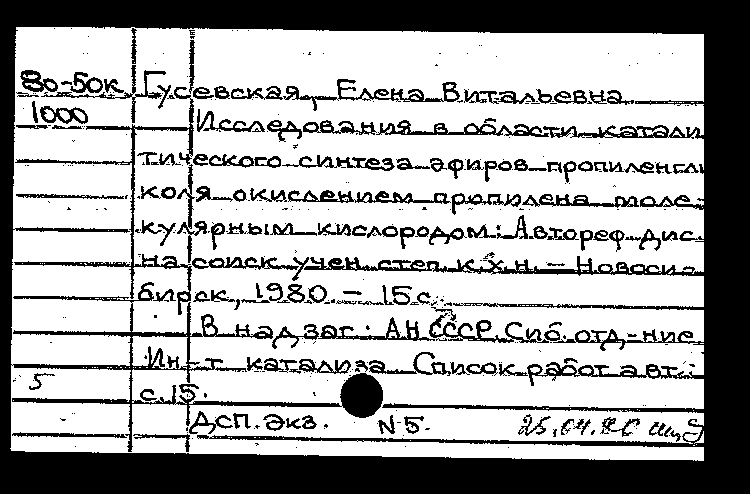 80-50к Гусевская, Елена Витальевна
1000 Исследования в области катали
тического синтеза эфиров пропиленгли
коля окислением пропилена моле-
кулярным кислородом: Автореф. дис.
на соиск учен степ. к.х.н. – Новоси-
бирск, 1980. – 15 с.
В надзаг.: АН СССР. Сиб. отд-ние.
Ин-т катализа Список работ авт.:
5 с.15.
ДСП. Экз. N 5. 25.04.80